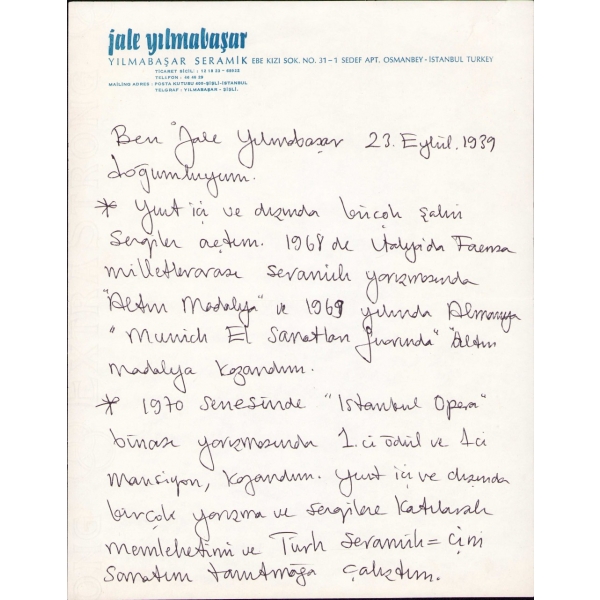 jale yılmabaşar
YILMABAŞAR SERAMİK EBE KIZI SOK. NO. 31-1 SEDEF APT. OSMANBEY - İSTANBUL TURKEY
TİCARET SİCİLİ :
TELEFON :
MAILING ADRES : POSTA KUTUSU ŞİŞLİ-İSTANBUL
TELGRAF : YILMABAŞAR - ŞİŞLİ.
Ben Jale Yılmabaşar 23. Eylül. 1939
doğumluyum.
* Yurt içi ve dışında birçok şahsi
sergiler açtım. 1968 de İtalya'da Faensa
milletlerarası seramik yarışmasında
"Altın Madalya" ve 1969 yılında Almanya
"Munich El Sanatları Fuarında" "Altın
madalya kazandım.
* 1970 senesinde "İstanbul Opera"
binası yarışmasında 1.ci ödül ve 1ci
mansiyon, kazandım. Yurt içi ve dışında
birçok yarışma ve sergilere katılarak
memleketimi ve Türk seramik = çini
sanatını tanıtmağa çalıştım.